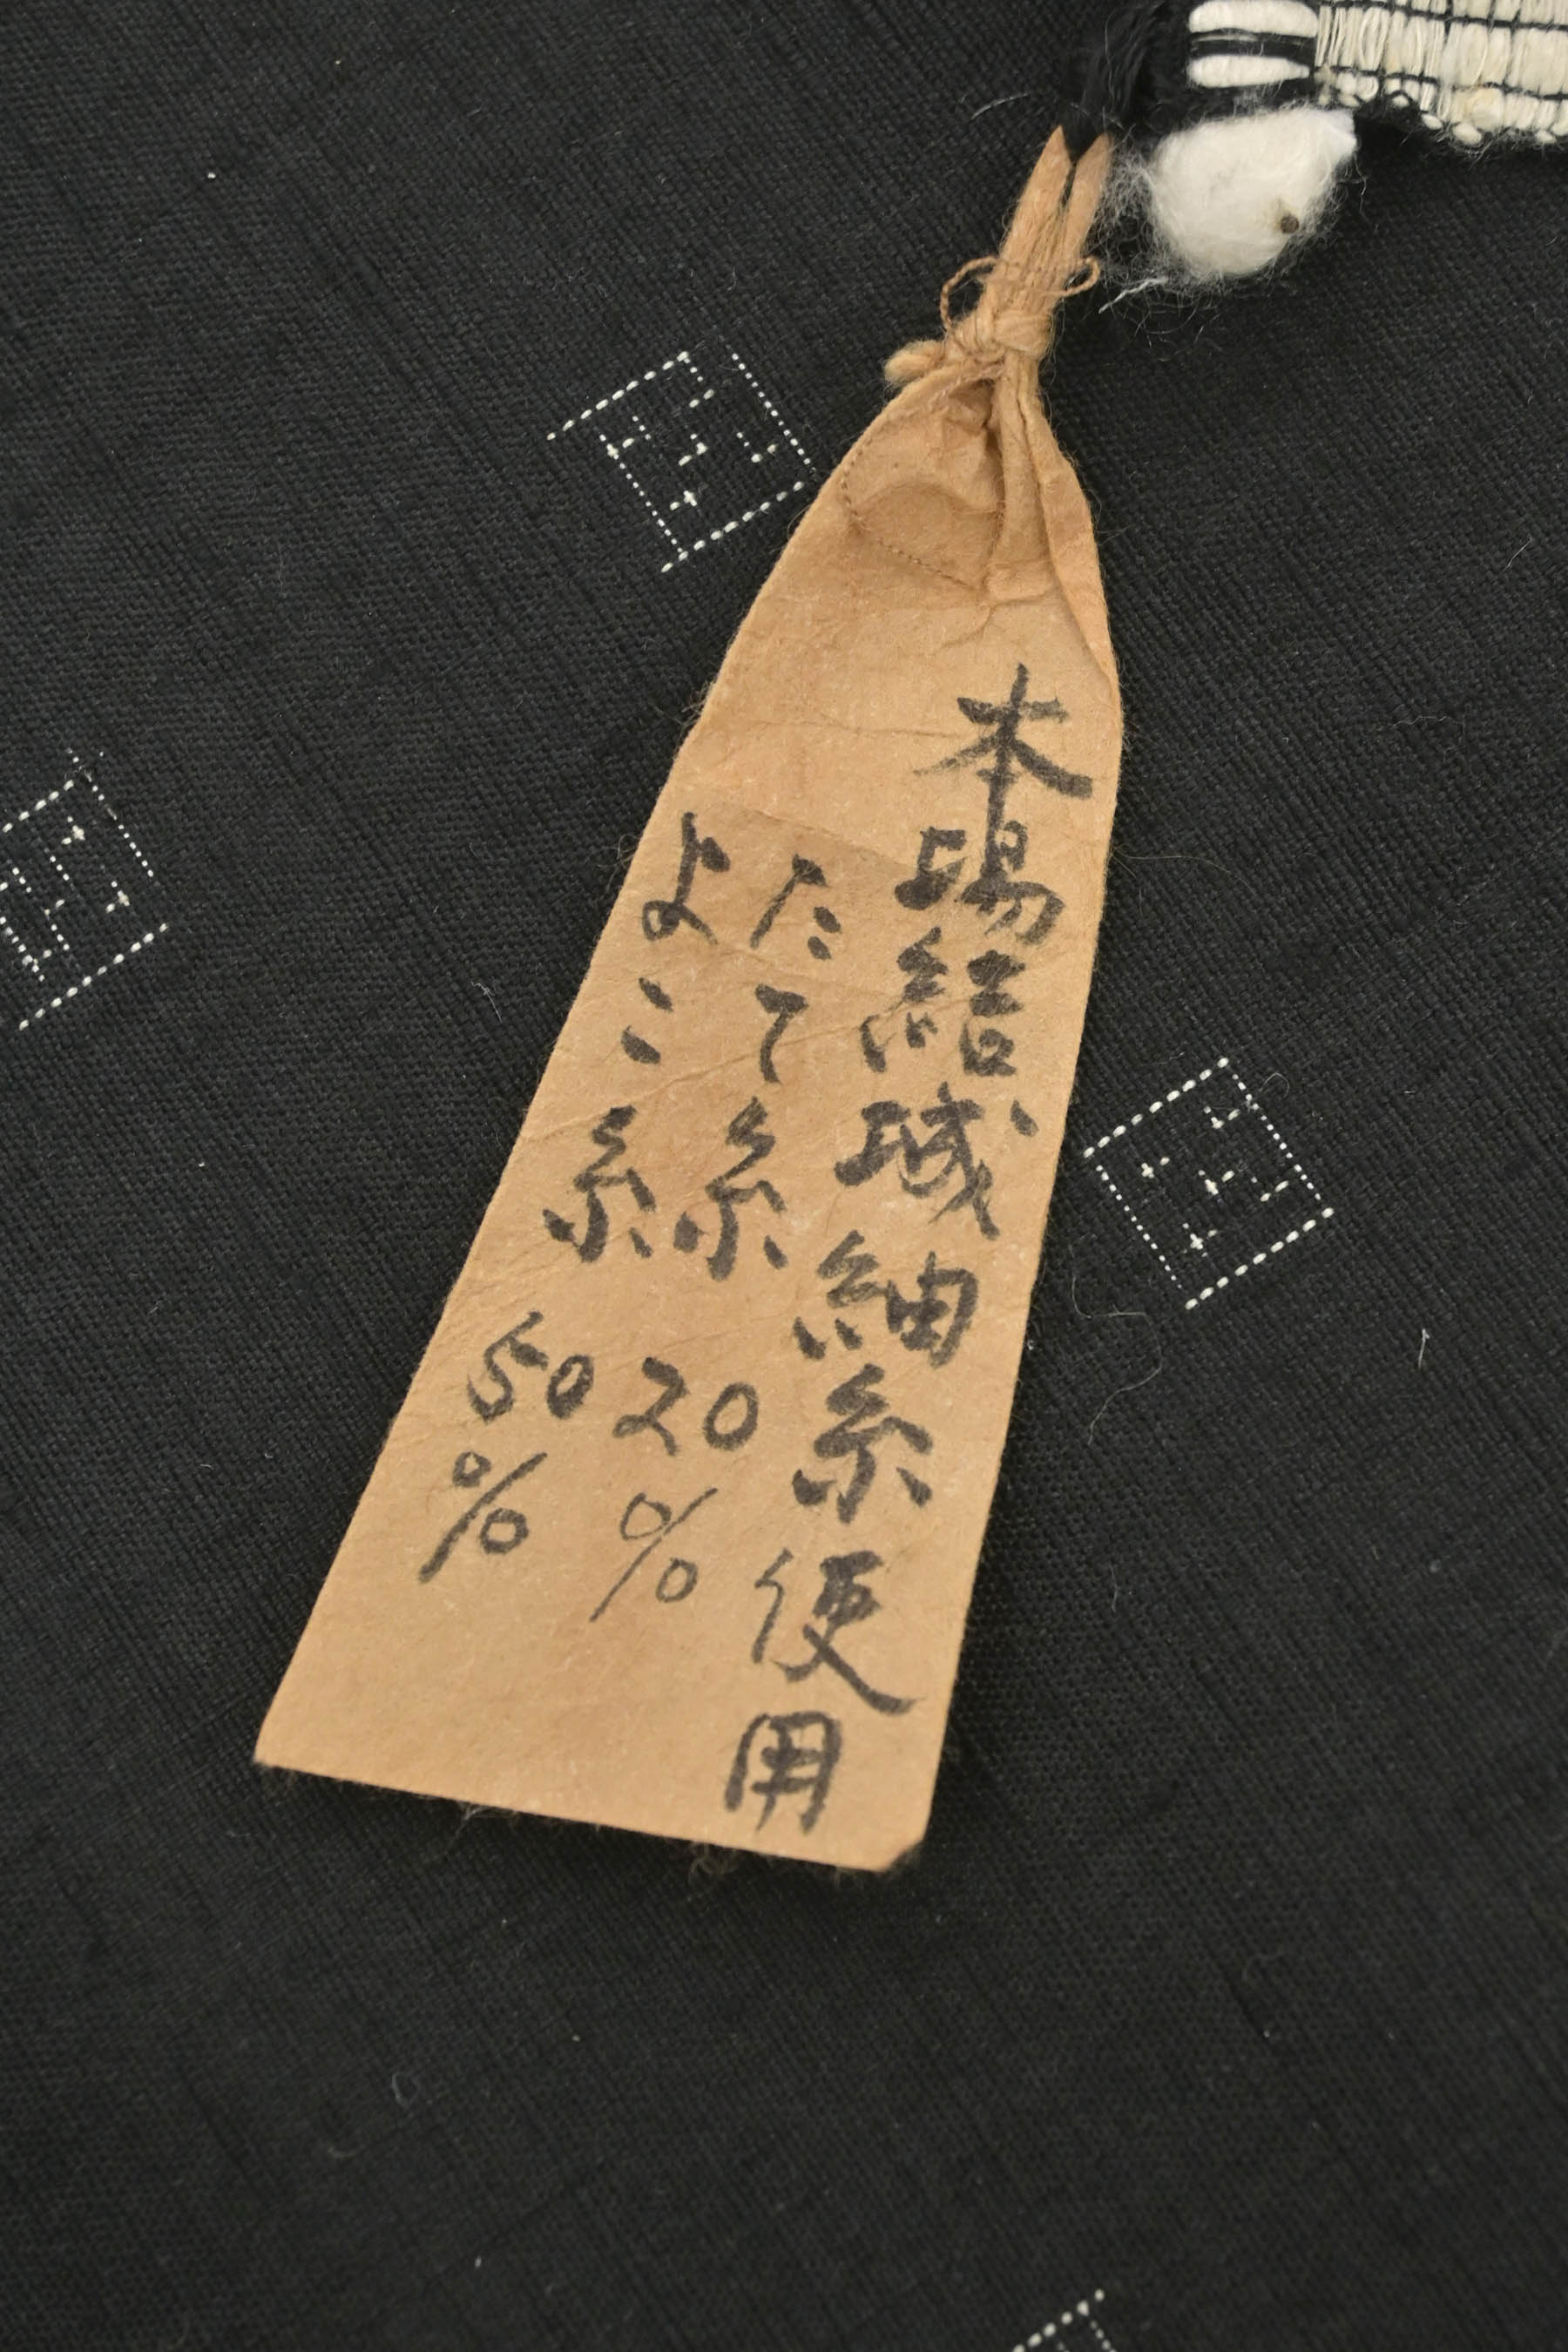 本場結城紬糸使用
たて糸 20%
よこ糸 50%